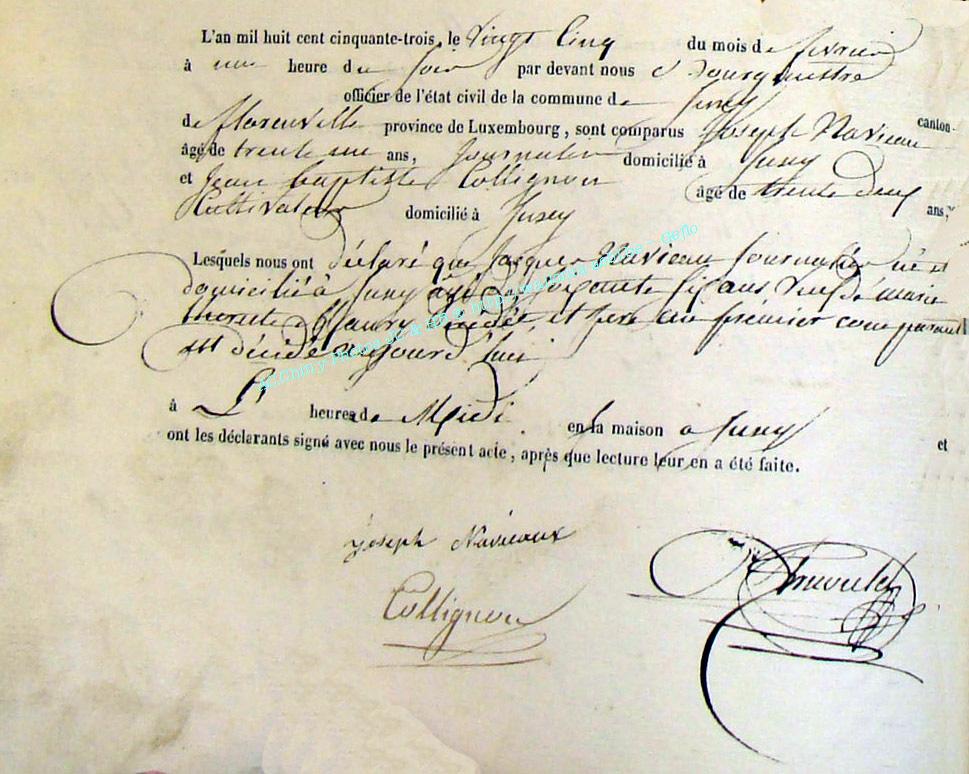 L'an mil huit cent cinquante-trois, le vingt Cinq du mois de fevrier
à une heure du soir par devant nous Bourgmestre
officier de l'état civil de la commune de Jusey
canton
de florenville province de Luxembourg, sont comparus Joseph Navieau
âgé de trente ans, Journalier domicilié à Jusey
et Jean baptiste Collignon âgé de trente deux ans,
Cultivateur domicilié à Jusey
Lesquels nous ont déclaré que Jacques Navieau Journalier né et
domicilié à Jusey agé de soixante six ans veuf de marie
décédée, et père au premier comparant
est décédé aujourd'hui
à heures de Midi en sa maison à Jusey et
ont les déclarants signé avec nous le présent acte, après que lecture leur en a été faite.
Joseph Navieaux
Collignon